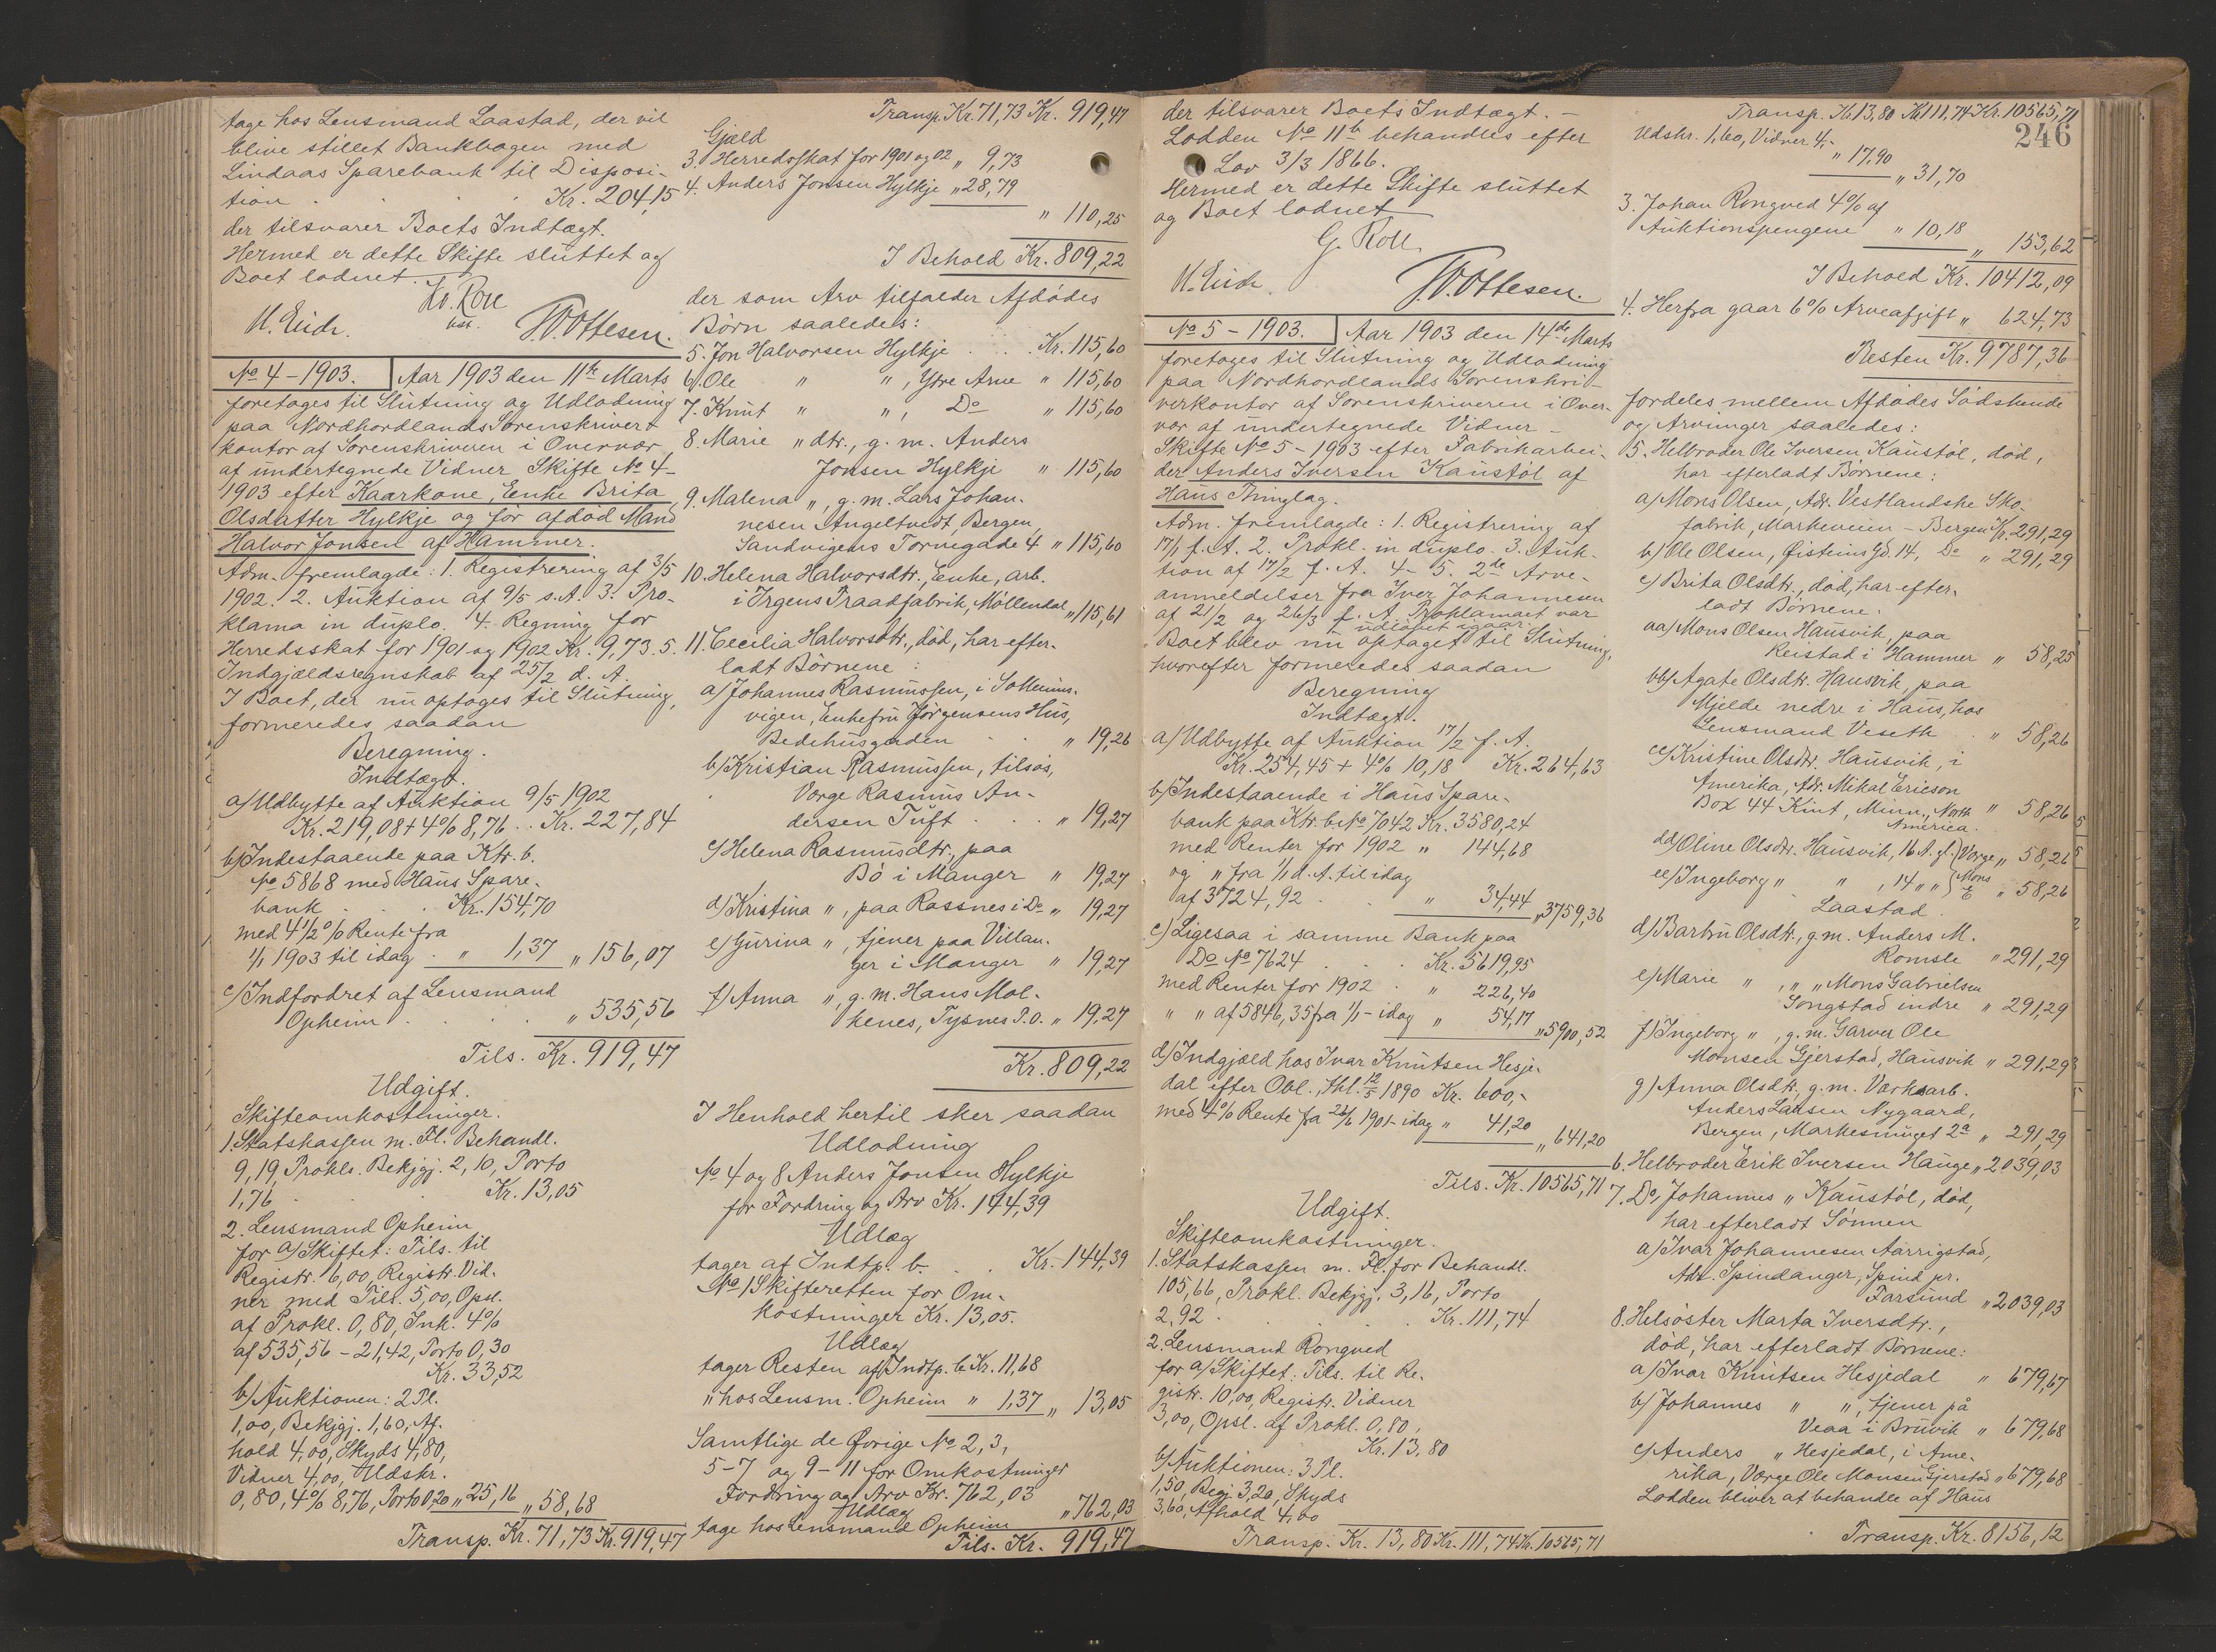 tage hos Lensmand Laastad, der vil
blive stillet Bankbogen med
Lindaas Sparebank til Disposi-
tion . . . Kr. 204,15
der tilsvarer Boets Indtægt.
Hermed er dette Skifte sluttet og
Boet lodnet.
Roll
M. Eide. W. Ottesen.
No 4 – 1903. Aar 1903 den 11te Marts
foretoges til Slutning og Udlodning
paa Nordhordlands Sorenskriver
kontor af Sorenskriveren i Overvær
af undertegnede Vidner Skifte No 4-
1903 efter Kaarkone, Enke Brita
Olsdatter Hylkje og før afdød Mand
Halvor Jonsen af Hammer.
Adm. fremlagde: 1. Registrering af 3/5
1902. 2. Auktion af 9/5 s. A. 3. Pro-
klama in duplo. 4. Regning for
Herredsskat for 1901 og 1902 Kr. 9,73. 5.
Indgjældsregnskab af 25/2 d. A.
I Boet, der nu optoges til Slutning,
formeredes saadan
Beregning.
Indtægt.
a/ Udbytte af Auktion 9/5 1902
Kr. 219,08 + 4% 8,76 . . Kr. 227,84
b/ Indestaaende paa Ktr. b.
No 5868 med Haus Spare-
bank . . . Kr. 154,70
med 4 1/2 % Rente fra
1/1 1903 til idag . " 1,37 " 156,07
c/ Indfordret af Lensmand
Opheim . . . . " 535,56
Tils. Kr. 919,47
Udgift.
Skifteomkostninger.
1. Statskassen m. Fl. Behandl.
9,19, Prokls. Bekjgj. 2,10, Porto
1,76 . . . Kr. 13,05
2. Lensmand Opheim
for a/ Skiftet: Tils. til
Registr. 6,00, Registr. Vid-
ner med Tils. 5,00, Opsl.
af Prokl. 0,80, Ink. 4%
af 535,56 – 21,42, Porto 0,30
Kr. 33,52
b/ Auktionen: 2 Pl.
1,00, Bekjgj. 1,60, Af-
hold 4,00, Skyds 4,80,
Vidner 4,00, Udskr.
0,80, 4% 8,76, Porto 0,20 " 25,16 " 58,68
Transp. Kr. 71,73 Kr. 919,47
Transp. Kr. 71,73 Kr. 919,47
Gjæld
3. Herredsskat for 1901 og 02 " 9,73
4. Anders Jonsen Hylkje " 28,79
" 110,25
I Behold Kr. 809,22
der som Arv tilfalder Afdødes
Børn saaledes:
5. Jon Halvorsen Hylkje . . . Kr. 115,60
6. Ole " ", Ytre Arne " 115,60
7. Knut " ", Do " 115,60
8. Marie " dtr., g. m. Anders
Jonsen Hylkje " 115,60
9. Malena ", g. m. Lars Johan-
nesen Angeltvedt, Bergen,
Sandvigens Tornegade 4 " 115,60
10. Helena Halvorsdtr., Enke, arb.
i Irgens Traadfabrik, Møllendal " 115,61
11. Cecilia Halvorsdtr., død, har efter-
ladt Børnene :
a/ Johannes Rasmussen, i Solheims-
vigen, Enkefru Jørgensens Hus,
Bedehusgaden . . " 19,26
b/ Kristian Rasmussen, tilsøs,
Værge Rasmus An-
dersen Tuft . . . " 19,27
c/ Helena Rasmusdtr., paa
Bø i Manger " 19,27
d/ Kristina ", paa Rossnes i Do " 19,27
e/ Gurina ", tjener paa Villan-
ger i Manger " 19,27
f/ Anna ", g. m. Hans Mol-
kenes, Tysnes P.O. " 19,27
Kr. 809,22
I Henhold hertil sker saadan
Udlodning
No 4 og 8 Anders Jonsen Hylkje
for Fordring og Arv Kr. 144,39
Udlæg
tager af Indtp. b. . . Kr. 144,39
No 1 Skifteretten for Om-
kostninger Kr. 13,05.
Udlæg
tager Resten af Indtp. b Kr. 11,68
" hos Lensm. Opheim " 1,37 " 13,05
Samtlige de Øvrige No 2, 3,
5-7 og 9-11 for Omkostninger
Fordring og Arv Kr. 762,03
Udlæg
tage hos Lensmand Opheim " 762,03
Tils. Kr. 919,47
der tilsvarer Boets Indtægt. –
Lodden No 11b behandles efter
Lov 3/3 1866.
Hermed er dette Skifte sluttet
og Boet lodnet
G. Roll
M. Eide. W. Ottesen.
No 5 – 1903. Aar 1903 den 14de Marts
foretoges til Slutning og Udlodning
paa Nordhordlands Sorenskri-
verkontor af Sorenskriveren i Over-
vær af undertegnede Vidner –
Skifte No 5 – 1903 efter Fabrikarbei-
der Anders Iversen Kaustøl af
Haus Thinglag.
Adm. fremlagde: 1. Registrering af
17/1 f. A. 2. Prokl. in duplo. 3. Auk-
tion af 17/2 f. A. 4- 5. 2de Arve-
anmeldelser fra Iver Johannesen
af 21/2 og 26/3 f. A. Proklamaet var
udløbet igaar.
Boet blev nu optaget til Slutning,
hvorefter formeredes saadan
Beregning
Indtægt.
a/ Udbytte af Auktion 17/2 f. A.
Kr. 254,45 + 4% 10,18 Kr. 264,63
b/ Indestaaende i Haus Spare-
bank paa Ktr. b. No 7042 Kr. 3580,24
med Renter for 1902 " 144,68
og " fra 1/1 d. A. til idag
af 3724,92 . . " 34,44 " 3759,36
c/ Ligesaa i samme Bank paa
Do No 7624 . . . Kr. 5619,95
med Renter for 1902 . " 226,40
" " af 5846,35 fra 1/1 – idag " 54,17 " 5900,52
d/ Indgjæld hos Ivar Knutsen Hesje-
dal efter Obl., thl. 12/5 1890 Kr. 600,-
med 4% Rente fra 26/6 1901 – idag " 41,20
" 641,20
Tils. Kr. 10565,71
Udgift.
Skifteomkostninger.
1. Statskassen m. Fl. for Behandl.
105,66, Prokl. Bekjgj. 3,16, Porto
2,92 . . . . . Kr. 111,74
2. Lensmand Rongved
for a/ Skiftet: Tils. til Re-
gistr. 10,00, Registr. Vidner
3,00, Opsl. af Prokl. 0,80,
Kr. 13,80
b/ Auktionen: 3 Pl.
1,50, Begj. 3,20, Skyds
3,60, Afhold 4,00
Transp. Kr. 13,80 Kr. 111,74 Kr. 10565,71
246
Transp. Kr. 13,80 Kr. 111,74 Kr. 10565,71
Udskr. 1,60, Vidner 4,-
" 17,90
" 31,70
3. Johan Rongved 4% af
Auktionspengene " 10,18
" 153,62
I Behold Kr. 10412,09
4. Herfra gaar 6% Arveafgift " 624,73
Resten Kr. 9787,36
fordeles mellem Afdødes Sødskende
og Arvinger saaledes:
5. Helbroder Ole Iversen Kaustøl, død,
har efterladt Børnene:
a/ Mons Olsen, Adr. Vestlandske Sko-
fabrik, Markeveien – Bergen Kr. 291,29
b/ Ole Olsen, Øisteins Gd. 14, Do " 291,29
c/ Brita Olsdtr., død, har efter-
ladt Børnene:
aa/ Mons Olsen Hausvik, paa
Reistad i Hammer " 58,25
bb/ Agate Olsdtr. Hausvik paa
Mjelde nedre i Haus, hos
Lensmand Veseth . " 58,26
cc/ Kristine Olsdtr. Hausvik, i
Amerika, Adr. Mikal Ericson
Box 44 Kint, Minn., North " 58,26
America.
dd/ Oline Olsdtr. Hausvik, 16 A. gl. (Værge " 58,26
ee/ Ingeborg " " , 14 " " Mons E " 58,26
Laastad.
d/ Barbru Olsdtr., g. m. Anders M.
Romsle " 291,29
e/ Marie " , " " Mons Gabrielsen
Songstad indre " 291,29
f/ Ingeborg ", g. m. Garver Ole
Monsen Gjerstad, Hausvik " 291,29
g/ Anna Olsdtr., g. m. Værksarb.
Anders Larsen Nygaard,
Bergen, Markesmuget 2a " 291,29
6. Helbroder Erik Iversen Hauge " 2039,03
7. Do, Johannes " Kaustøl, død,
har efterladt Sønnen
a/ Ivar Johannesen Aarrigstad,
Adr. Spindanger, Spind pr.
Farsund " 2039,03
8. Helsøster Marta Iversdtr.,
død, har efterladt Børnene:
a/ Ivar Knutsen Hesjedal " 679,67
b/ Johannes " ", tjener på
Veaa i Bruvik " 679,68
c/ Anders " Hesjedal, i Ame-
rika, Værge Ole Monsen Gjerstad " 679,68
Lodden bliver at behandle af Haus
Transp. Kr. 8156,12